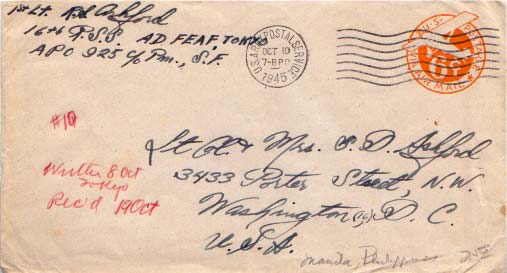 1st Lt. R.D. Ashford
16th P.S.S AD FEAF, TOKYO
APO 925 c/o Pm., S.F.
U.S. ARMY POSTAL SERVICE
OCT 10
7-8 PM
1945
U.S. POSTAGE
VIA AIR MAIL
06
#10
Written 8 Oct
Tokyo
Rec'd 19 Oct
Lt Col. & Mrs. S. D. Ashford
3433 Porter Street, N.W.
Washington (16) D. C.
U.S.A.
Manila, Philippines